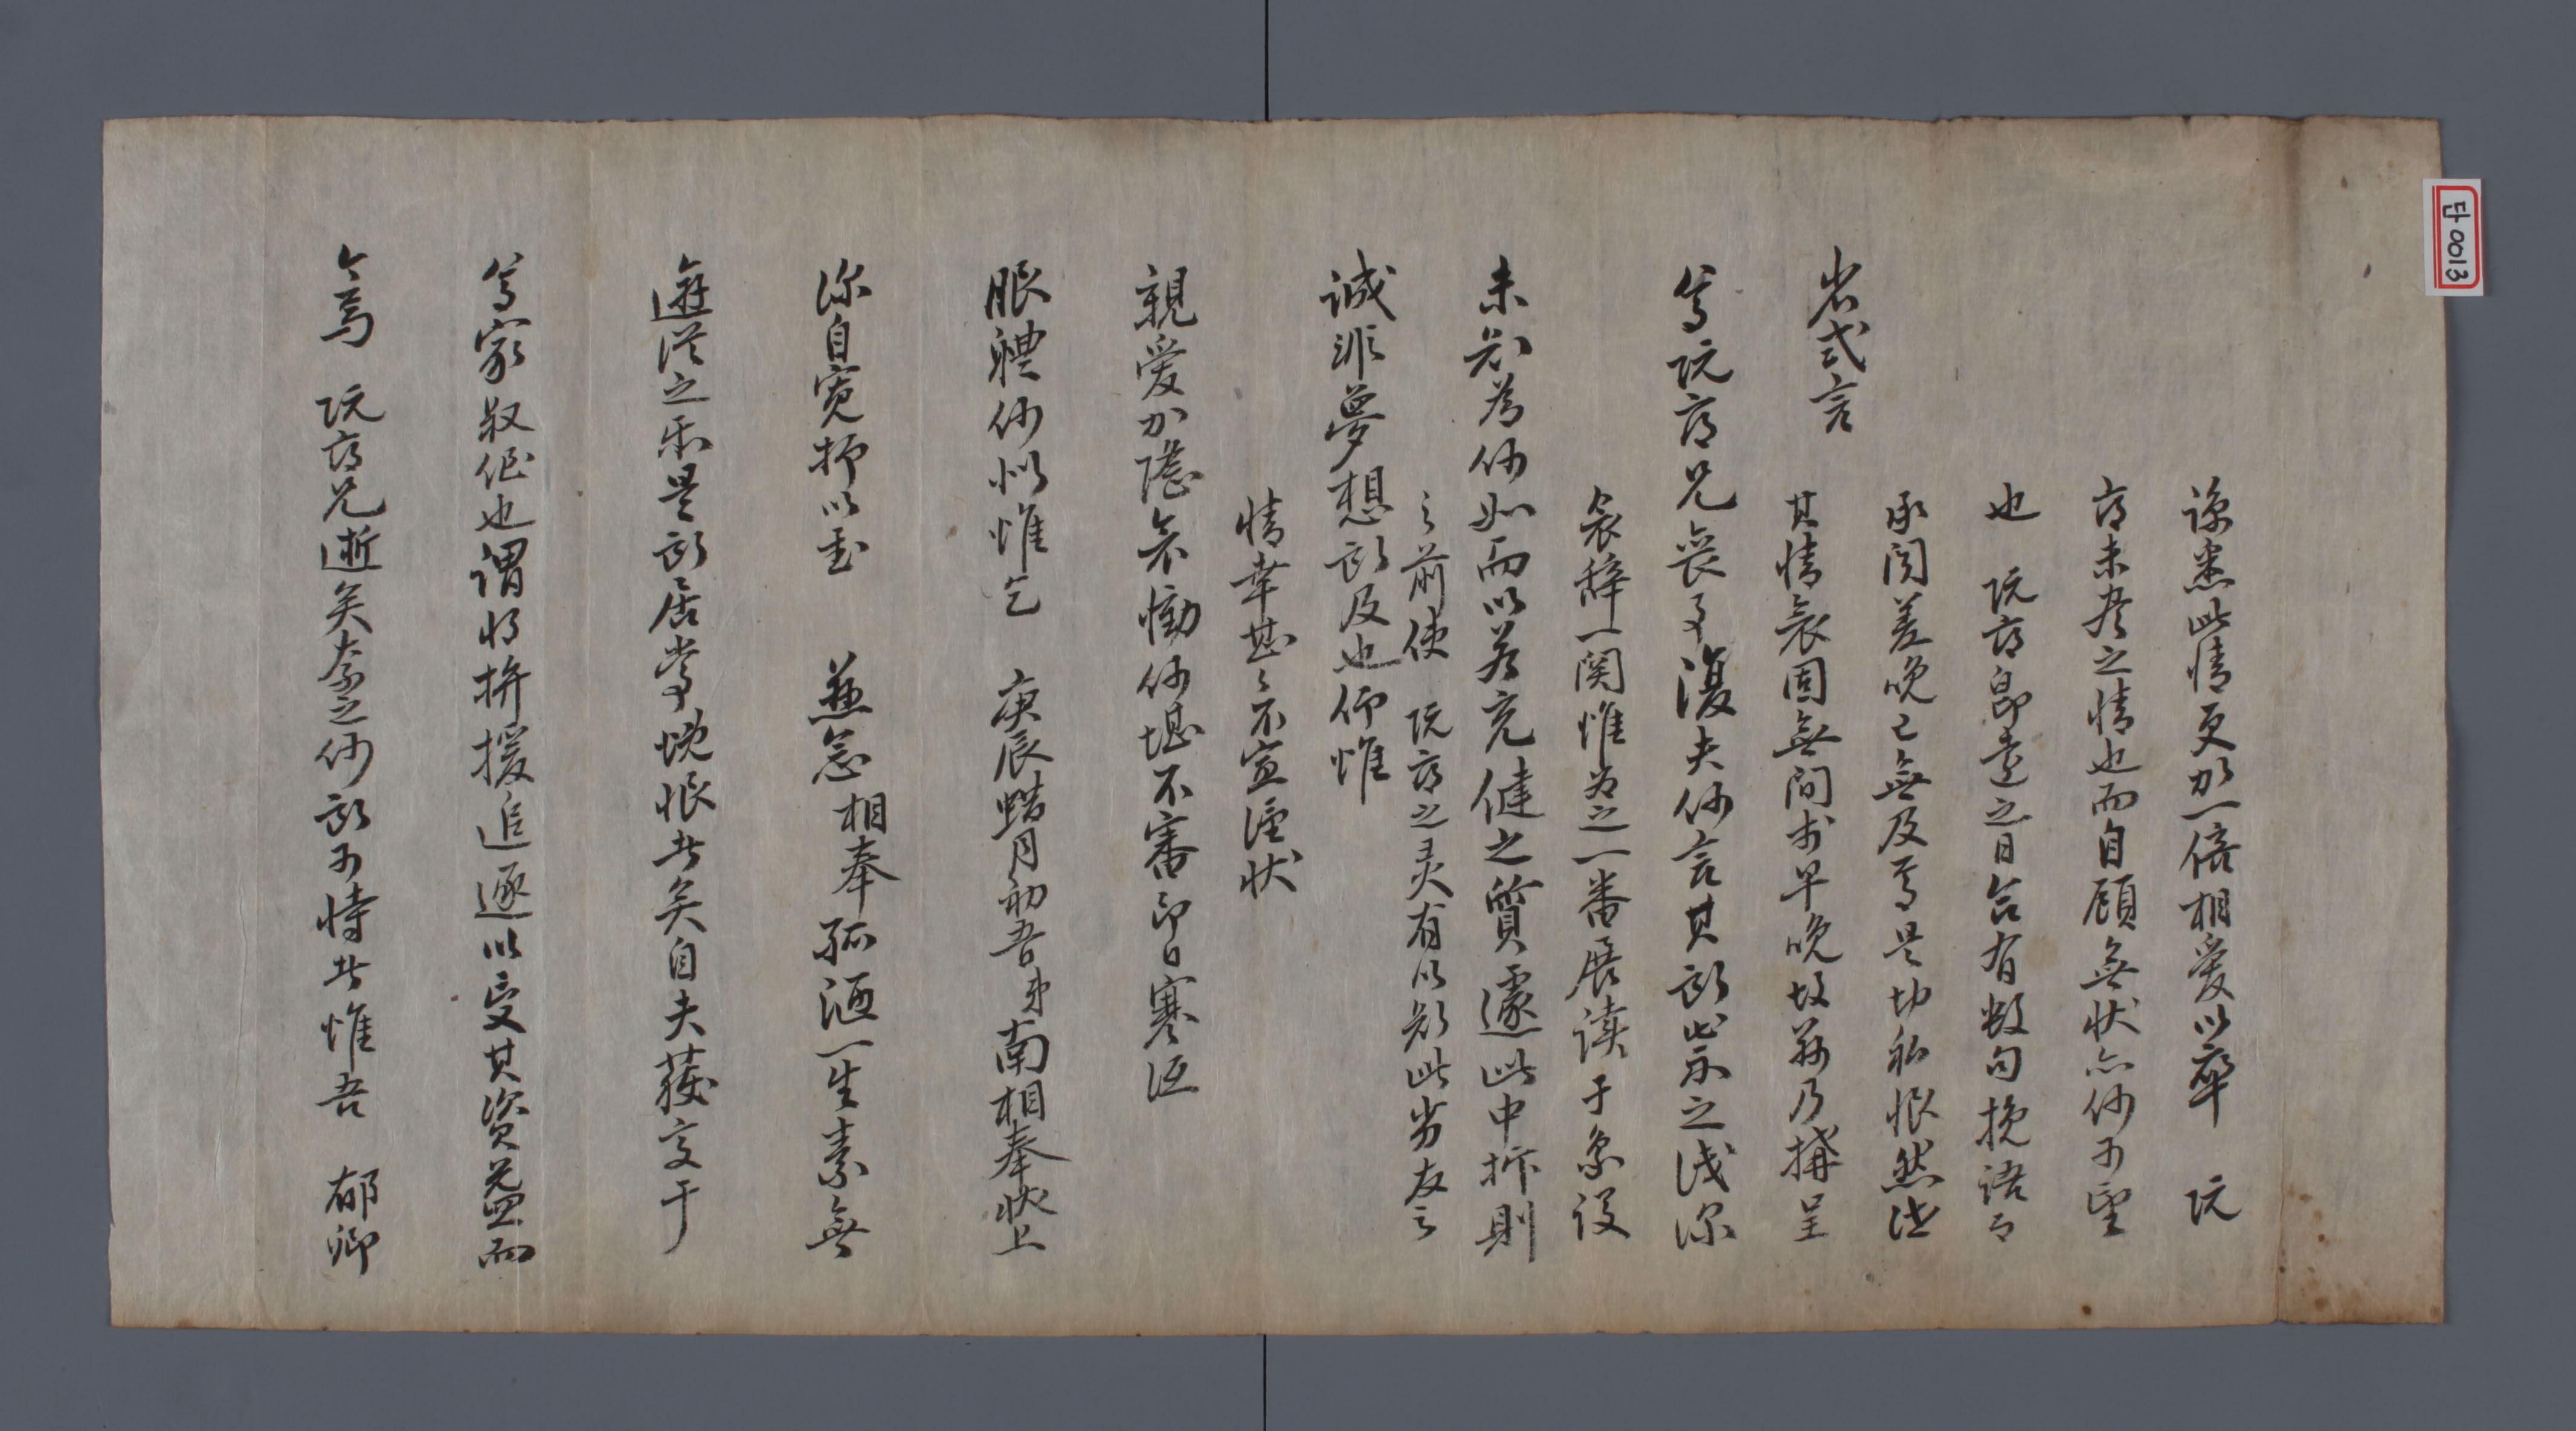 省式言
尊阮府兄喪事復夫何言其所學之淺深
未知爲何如而以若充健之質遽此中折則
誠非夢想所及也仰惟
親愛加隆哀慟何堪不審卽日寒沍
服體何似惟乞
深自寬抑以慰 相奉孤陋一生素無
遊從之樂是所居常愧恨者矣自夫獲交于
尊家叔侄也謂將拚援追逐以受其資益而
今焉 阮府兄逝矣奈之何所可恃者惟吾 郁卿
諒悉此情更加一倍相愛以卒 阮
府未盡之情也而自顧無狀亦何可望
也 阮府卽遠之日合有數句挽語而
承聞差晩已無及焉是切私恨然
其情哀固無間於早晩故茲乃搆呈
哀辭一闋惟爲之一番展讀于象設
之前使 阮府之灵有以知此劣友之
情幸甚幸甚不宣謹狀
庚辰蜡月初吾弟南相奉狀上
단0013